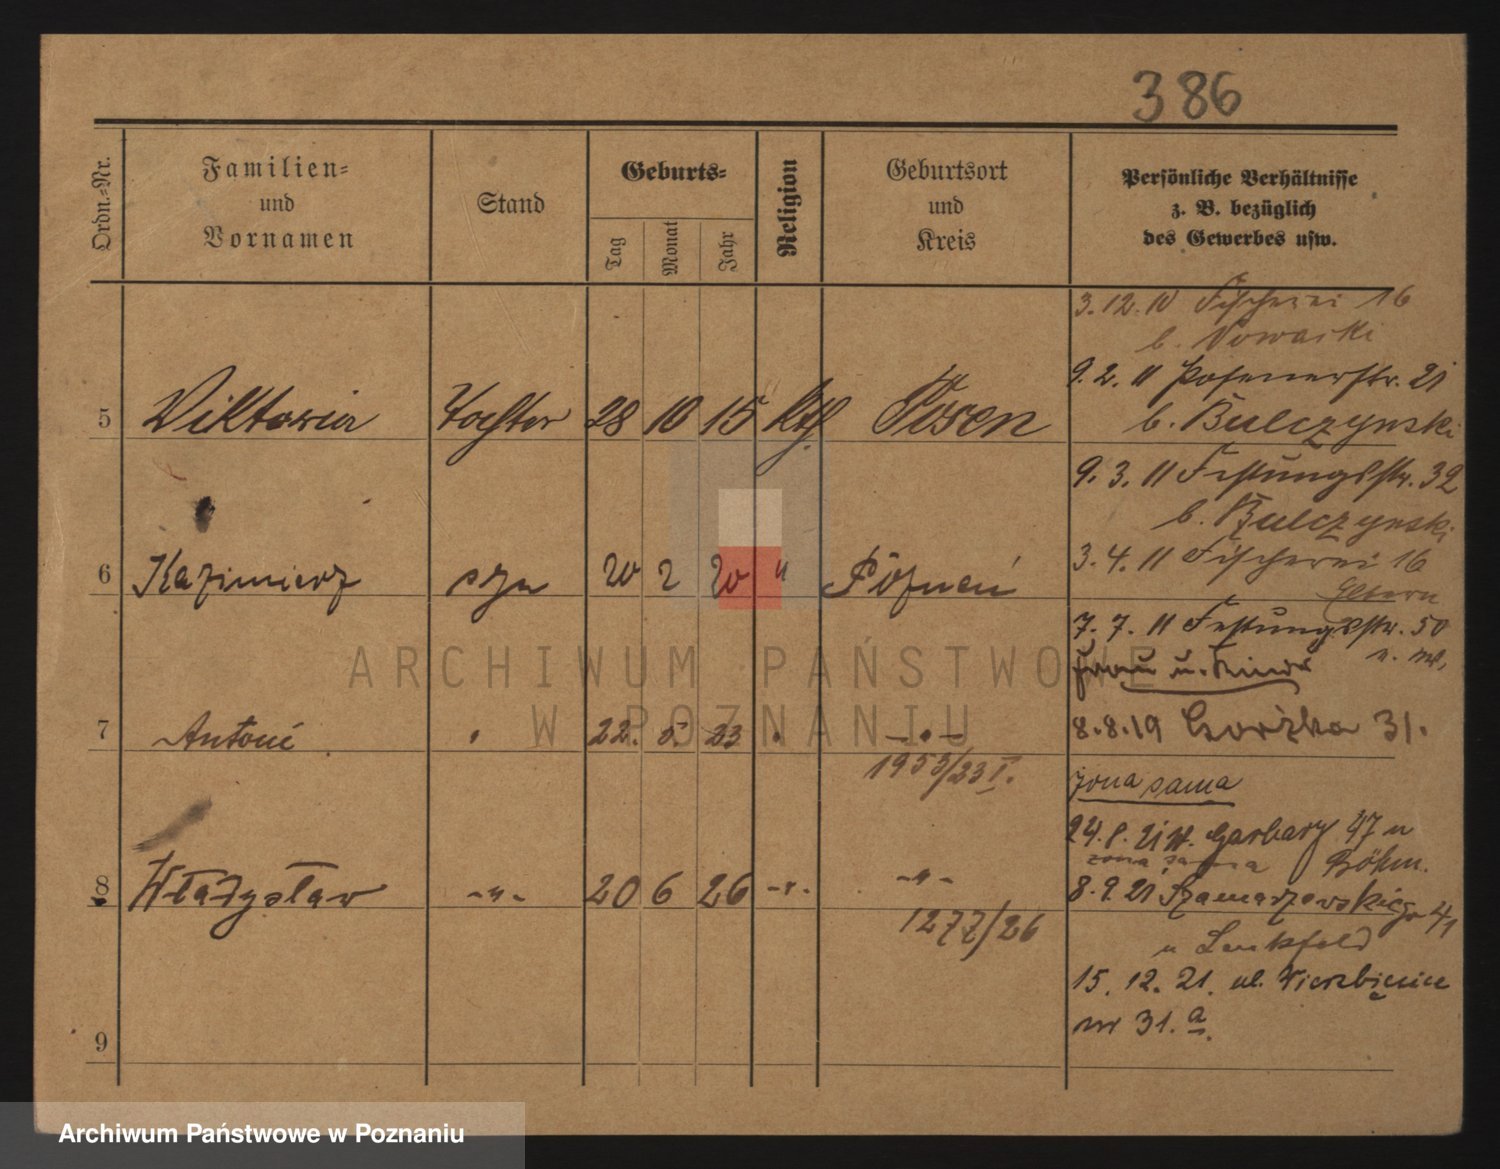 386
Ordn.-Nr.
Familien-
und
Vornamen
Stand
Geburts-
Tag
Monat
Jahr
Religion
Geburtsort
und
Kreis
Persönliche Verhältnisse
z. B. bezüglich
des Gewerbes usw.
5 Viktoria Tochter 28 10 15 kth Posen
6 Kazimierz syn 20 2 20 " Poznań
7 Antoni 22. 5. 23 -"-
1953/23 I.
8 Władysław -"- 20 6 26 -"- -"-
1277/26
9
3.12.10 Fischerei 16
b. Nowacki
9.2.11 Posenerstr. 21
b. Bulczynski
9.3.11 Festungsstr. 32
b. Bulczynski
3.4.11 Fischerei 16
Eltern
7.7.11 Festungsstr. 50
Frau u. Kinder
8.8.19 31.
żona sama
24.8.21 W. Garbary 47 u
żona sama Böhm.
8.9.21 Szamarzewskiego 41
u
15.12.21. ul. Wierzbięcice
nr 31.a
ARCHIWUM PAŃSTWOWE
W POZNANIU
Archiwum Państwowe w Poznaniu